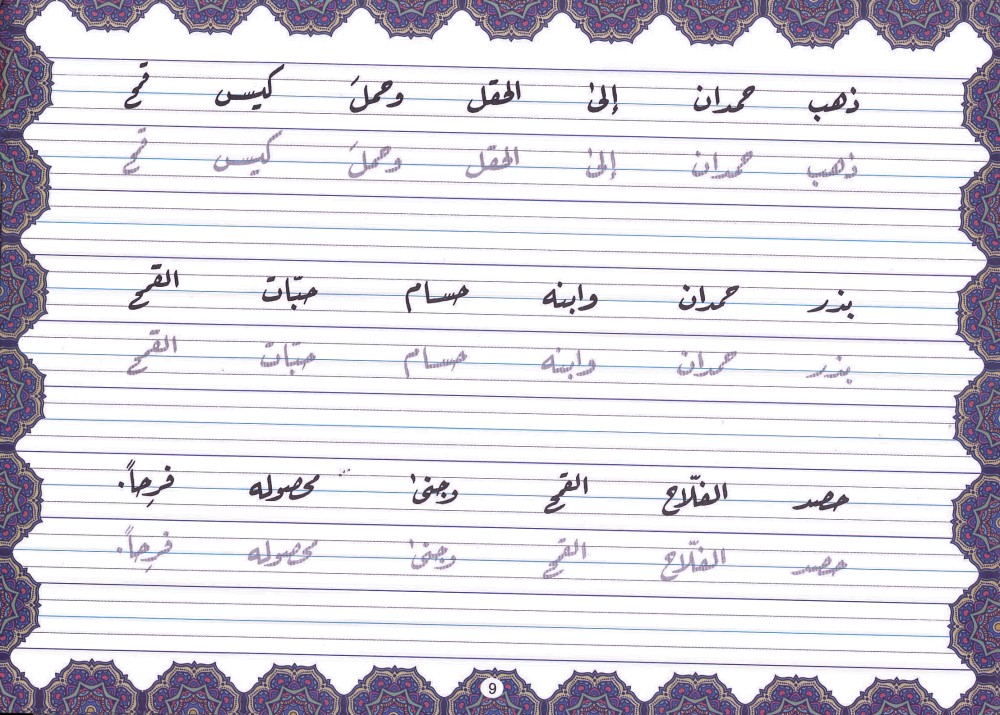 ذهب حمدان إلىٰ الحقل وحملَ كيس قمح
ذهب حمدان إلىٰ الحقل وحملَ كيس قمح
بذر حمدان وابنه حسام حبّات القمح
بذر حمدان وابنه حسام حبّات القمح
حصد الفلّاح القمح وجنىٰ محصوله فرِحاً.
حصد الفلّاح القمح وجنىٰ محصوله فرِحاً.
9